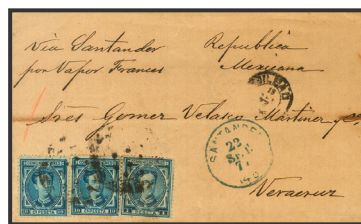 Via Santander
por Vapor Frances
Republica
Mexicana
BILBAO
Sres Gomez Velasco Martinez y
SANTANDER
22
SET
Veracruz